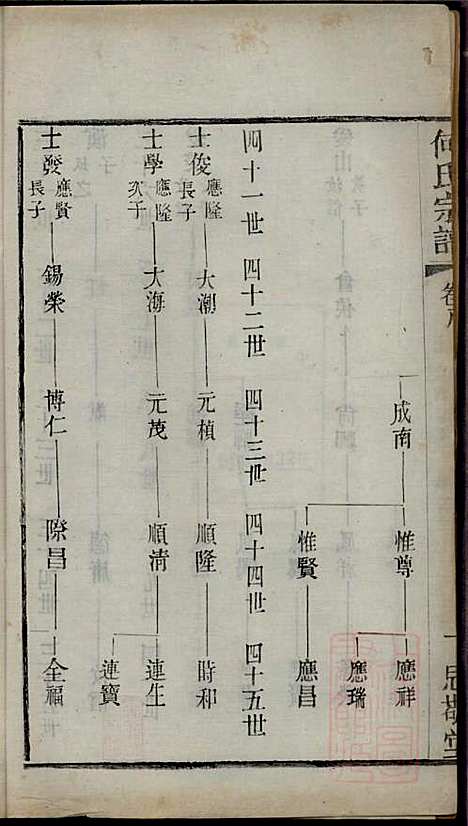 何氏宗譜
卷
思敬堂
成南
惟尊 應祥
應瑞
惟賢 應昌
四十一世 四十二世 四十三世 四十四世 四十五世
士俊 應隆長子 大潮 元楨 順隆 時和
士學 應隆次子 大海 元茂 順清 連生
連寶
士發 應賢長子 錫榮 博仁 際昌 全福